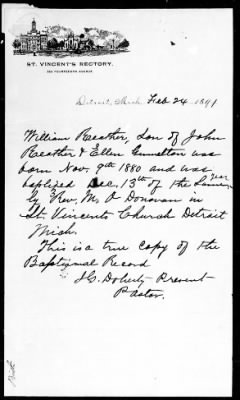 ST. VINCENT'S RECTORY.
FOURTEENTH AVENUE
Detroit, Mich. Feb 24 1891
William Reather, Son of John
Reather & Ellen was
born Nov. 9th 1880 and was
baptized Dec. 13th of the same year
by Rev. M. O Donovan in
St. Vincents Church Detroit
Mich.
This is a true copy of the
Baptismal Record
Doherty Present
Pastor.